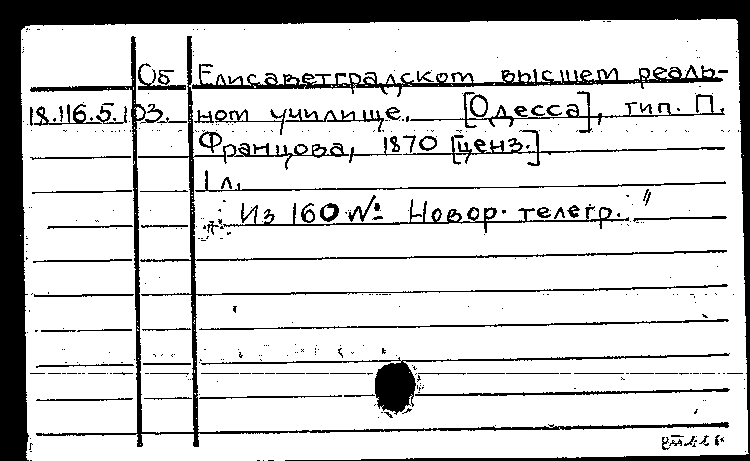 Об Елисаветградском высшем реаль-
18.116.5.103. ном училище. [Одесса], тип. П.
Францова, 1870 [ценз.].
1 л.
"Из 160 № Новор. телегр."